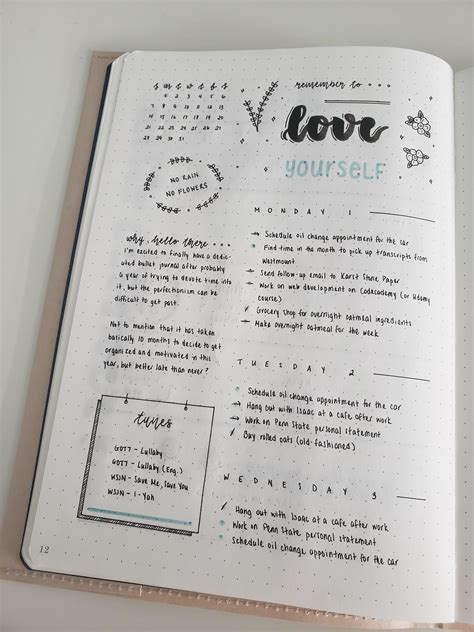 remember to...
love
yourself
s m t w t f s
1 2 3 4 5 6
7 8 9 10 11 12 13
14 15 16 17 18 19 20
21 22 23 24 25 26 27
28 29 30 31
NO RAIN
NO FLOWERS
why, hello there...
I'm excited to finally have a dedi-
cated bullet journal after probably
a year of trying to devote time into
it, but the perfectionism can be
difficult to get past.
Not to mention that it has taken
basically 10 months to decide to get
organized and motivated in this
year, but better late than never?
tunes
GOT7 - Lullaby
GOT7 - Lullaby (Eng.)
WJSN - Save Me, Save You
WJSN - I-Yah
MONDAY 1
Schedule oil change appointment for the car
Find time in the month to pick up transcripts from
Westmount
Send follow-up email to Karst Stone Paper
Work on web development on Codecademy (or Udemy
course)
Grocery shop for overnight oatmeal ingredients
Make overnight oatmeal for the week
TUESDAY 2
Schedule oil change appointment for the car
Hang out with Isaac at a cafe after work
Work on Penn State personal statement
Buy rolled oats (old-fashioned)
WEDNESDAY 3
Hang out with Isaac at a cafe after work
Work on Penn State personal statement
Schedule oil change appointment for the car
12